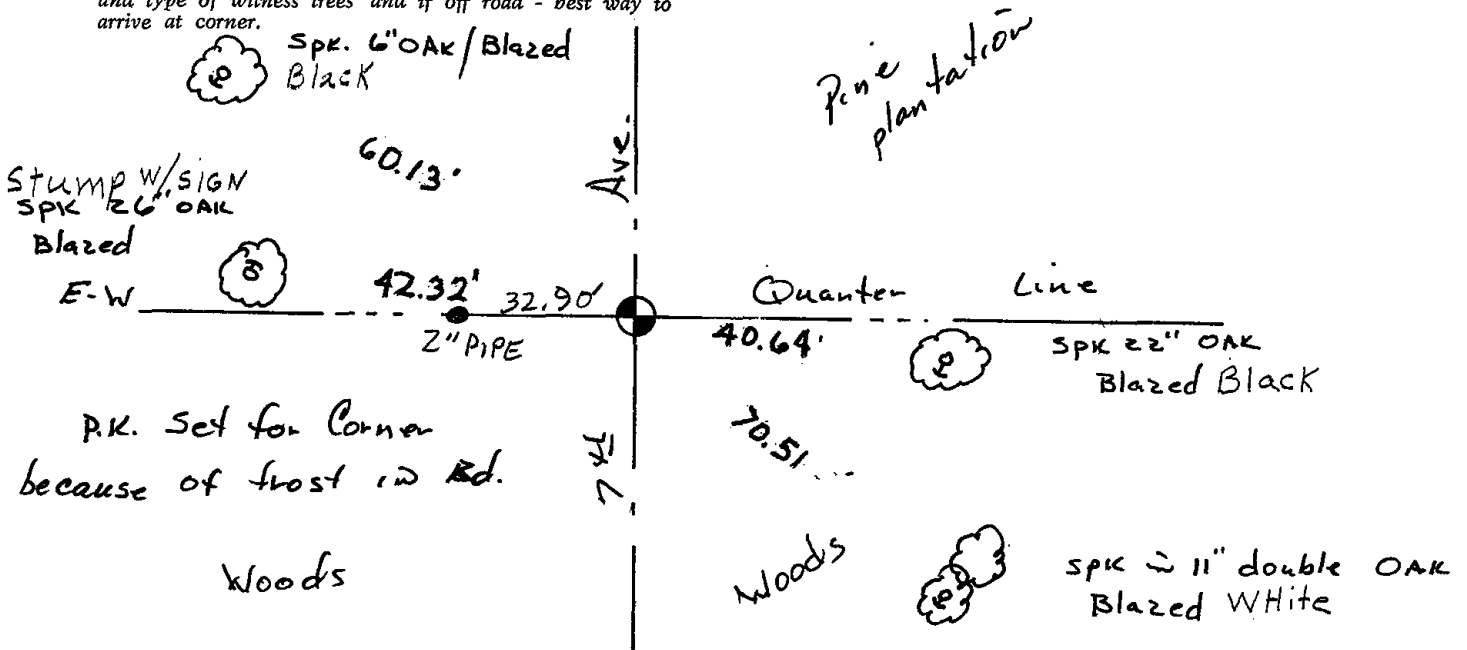 and type of witness trees and if off road - best way to
arrive at corner.
Spk. 6" OAK / Blazed
Black
Pine
plantation
60.13'
Ave.
Stump W/ SIGN
SPK 26" OAK
Blazed
E-W
42.32'
32.90'
Quarter Line
2" PIPE
40.64'
SPK 22" OAK
Blazed Black
P.K. Set for Corner
because of frost in Rd.
70.51
7 th
Woods
Woods
SPK in 11" double OAK
Blazed WHite